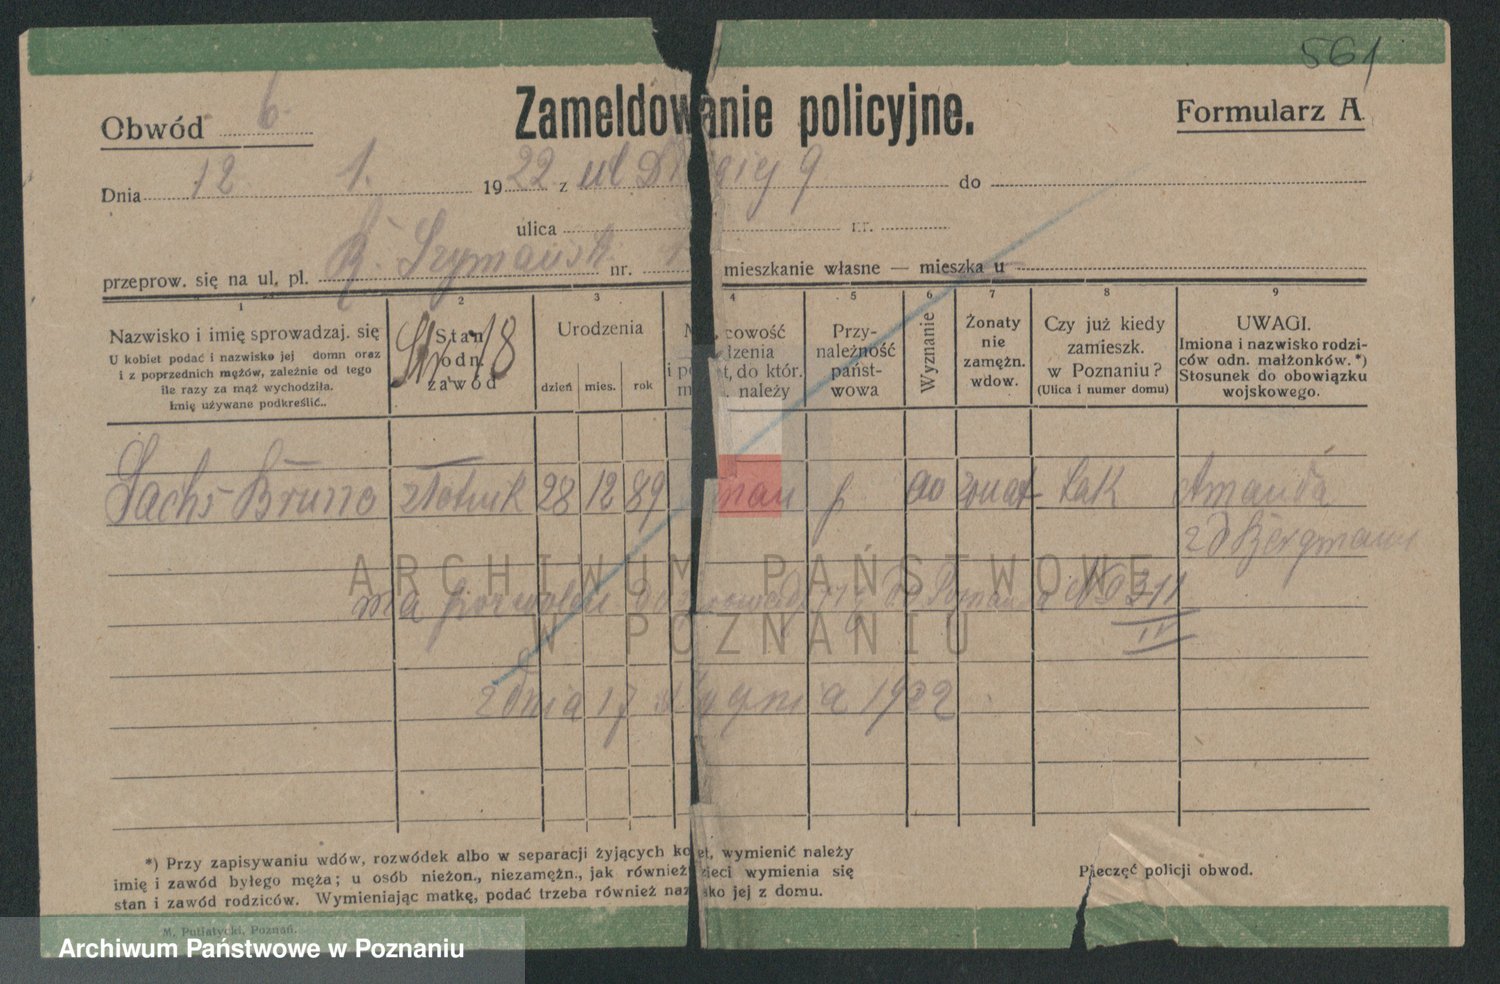 561
Obwód 6.
Zameldowanie policyjne.
Formularz A.
Dnia 12. 1. 1922 z ul 9 do
ulica nr.
przeprow. się na ul. pl. nr. mieszkanie własne — mieszka u
1 2 3 4 5 6 7 8 9
Nazwisko i imię sprowadzaj. się
U kobiet podać i nazwisko jej domn oraz
i z poprzednich mężów, zależnie od tego
ile razy za mąż wychodziła.
Imię używane podkreślić..
Stan
odn.
zawód
18
Urodzenia
dzień mies. rok
cowość
dzenia
t, do któr.
należy
Przy-
należność
państ-
wowa
Wyznanie
Żonaty
nie
zamężn.
wdow.
Czy już kiedy
zamieszk.
w Poznaniu?
(Ulica i numer domu)
UWAGI.
Imiona i nazwisko rodzi-
ców odn. małżonków. *)
Stosunek do obowiązku
wojskowego.
Sachs Bruno złotnik 28 12 89 p żonat tak Amanda
z d Bergmann
ma No 311
IV
z dnia 17 1922
ARCHIWUM PAŃSTWOWE
W POZNANIU
*) Przy zapisywaniu wdów, rozwódek albo w separacji żyjących kobiet, wymienić należy
imię i zawód byłego męża; u osób nieżon., niezamężn., jak również dzieci wymienia się
stan i zawód rodziców. Wymieniając matkę, podać trzeba również nazwisko jej z domu.
Pieczęć policji obwod.
M. Putiatycki, Poznań.
Archiwum Państwowe w Poznaniu